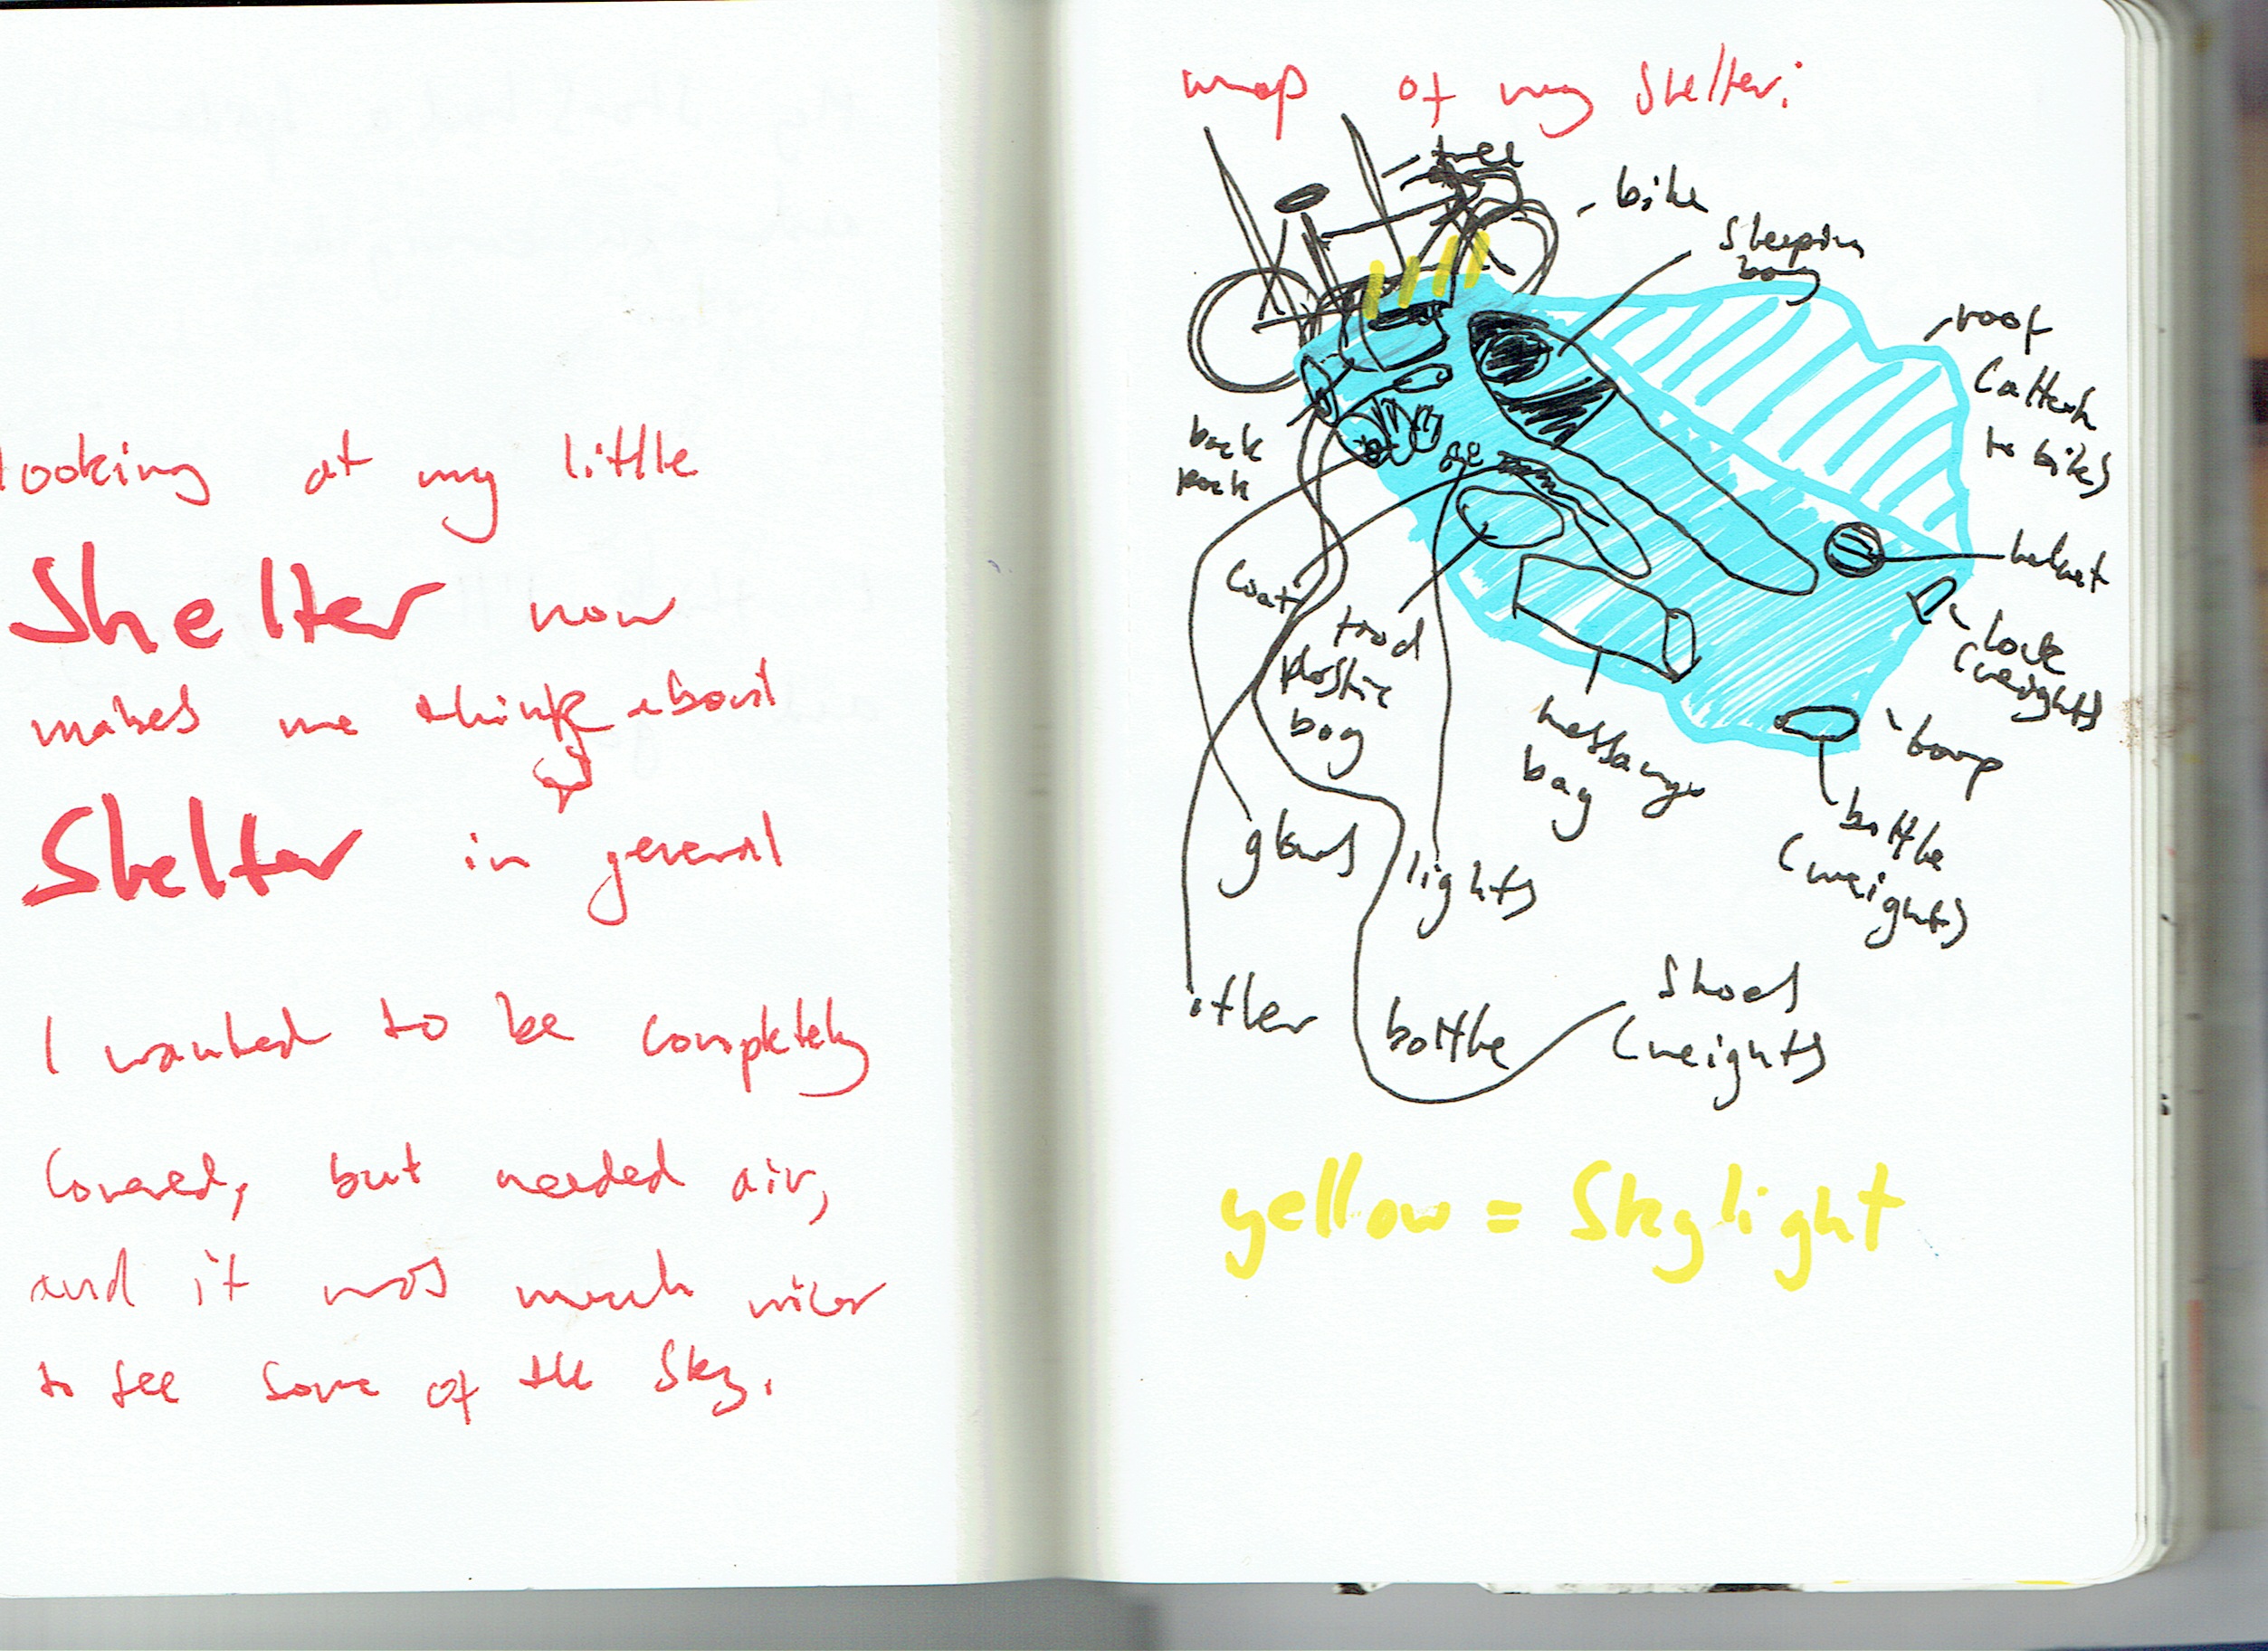 looking at my little
Shelter now
makes me think about
Shelter in general
I wanted to be completely
covered, but needed air,
and it was much nicer
to see some of the sky.
map of my shelter:
tree
bike
sleeping
bag
roof
(attach
to bikes)
back
pack
helmet
coat
food
plastic
bag
lock
(weights)
messanger
bag
tarp
bottle
(weights)
gloves
lights
other
bottle
shoes
(weights)
yellow = skylight